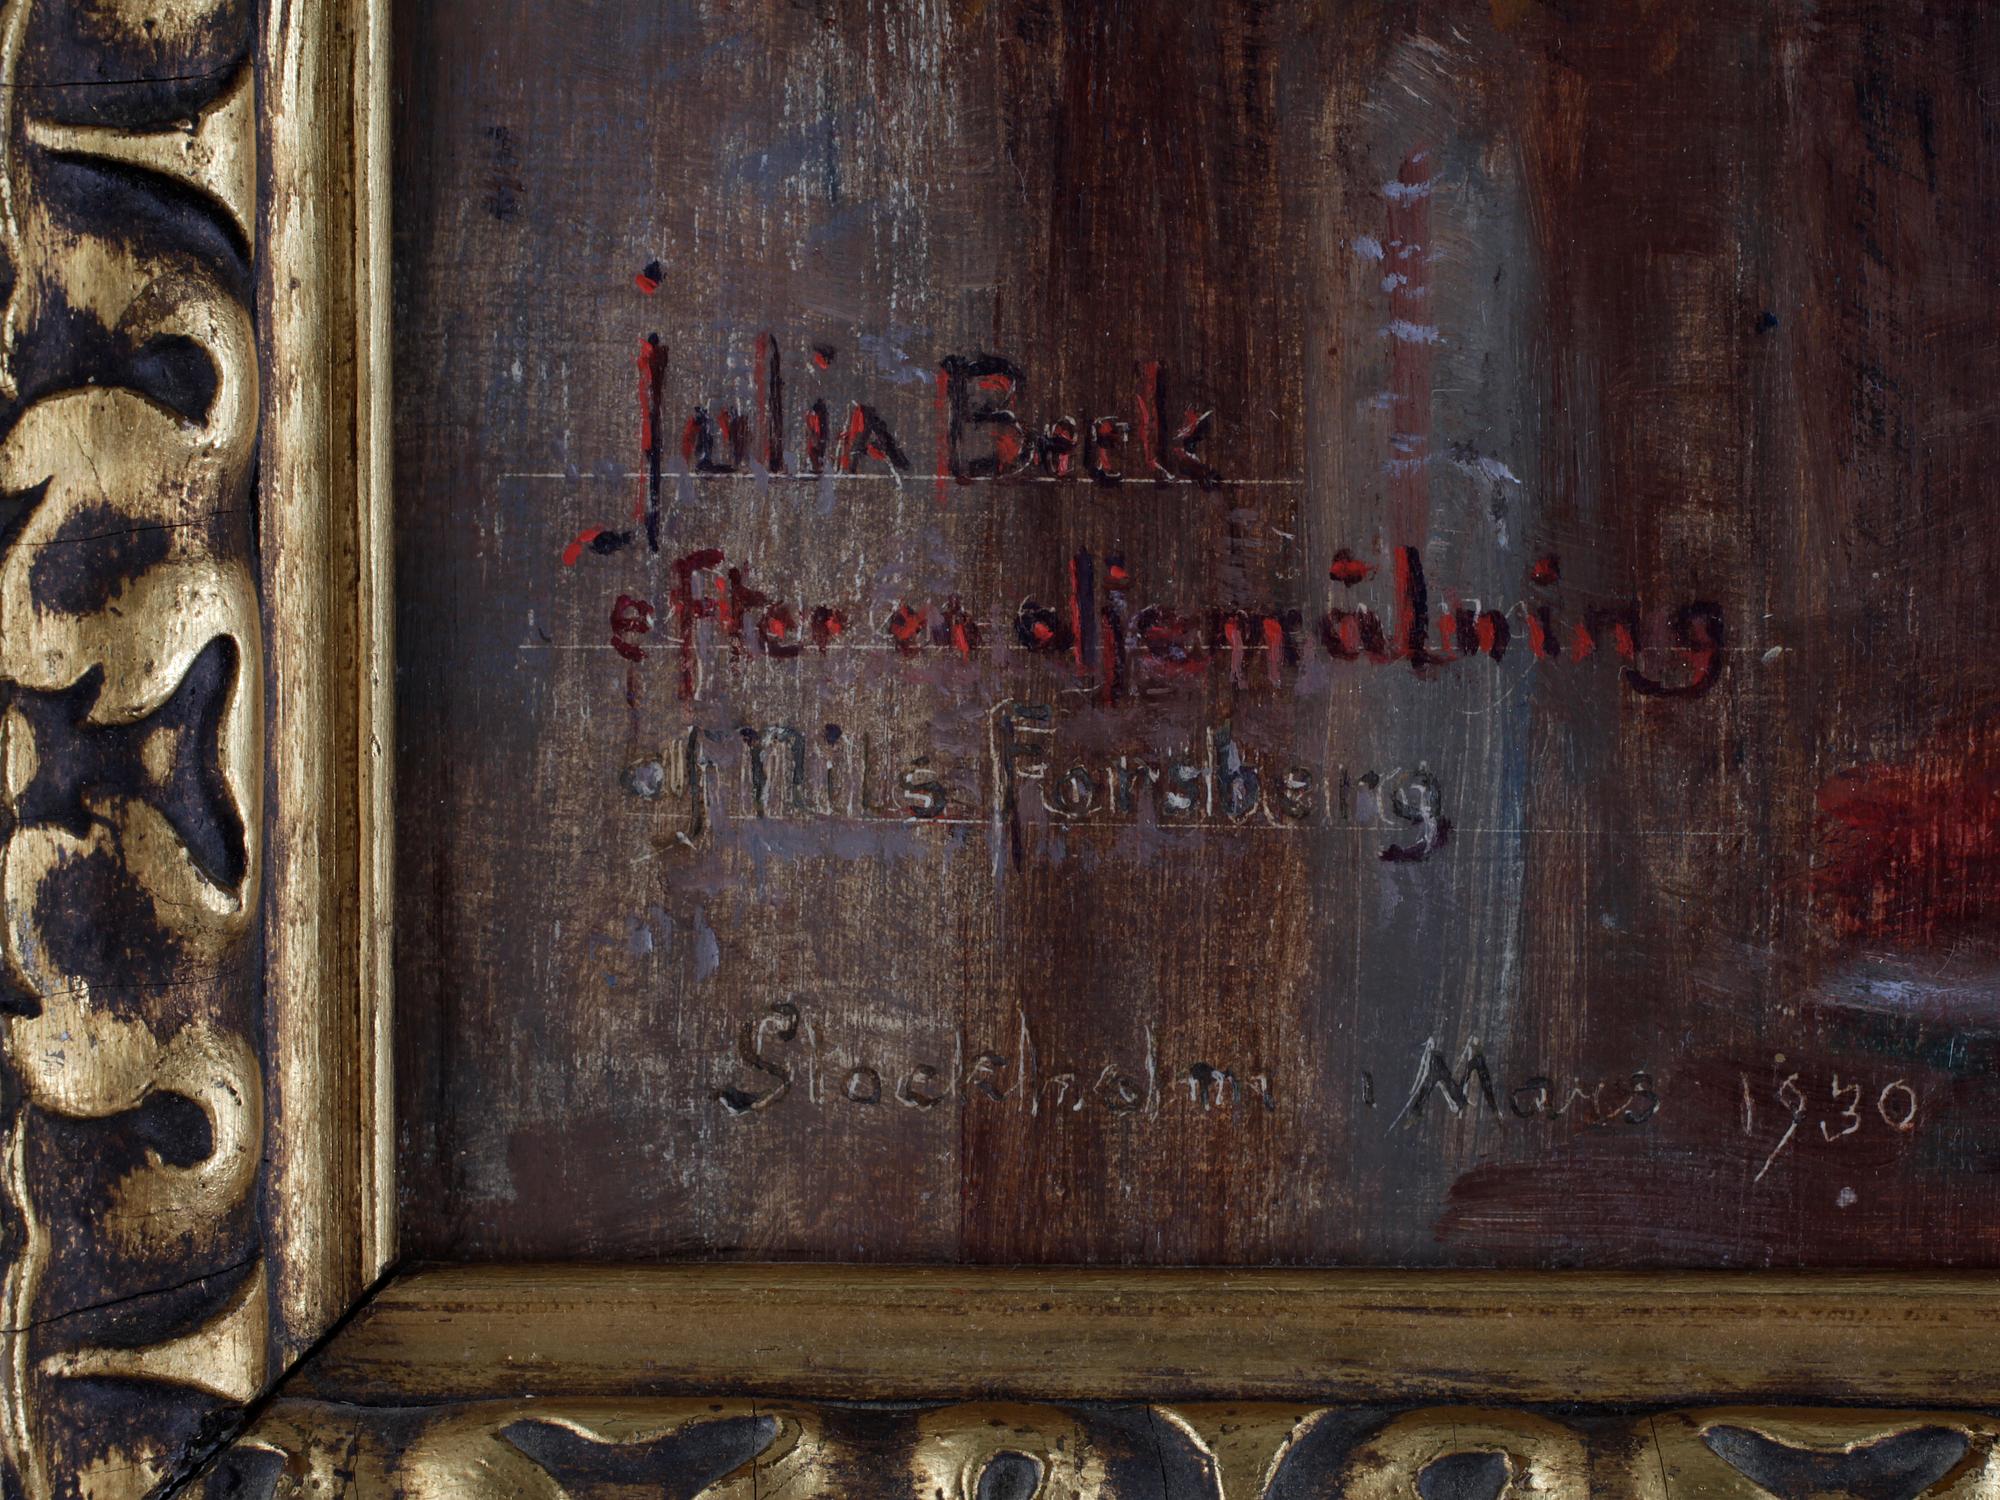 Julia Beck
efter en oljemålning
af Nils Forsberg
Stockholm i Mars 1930